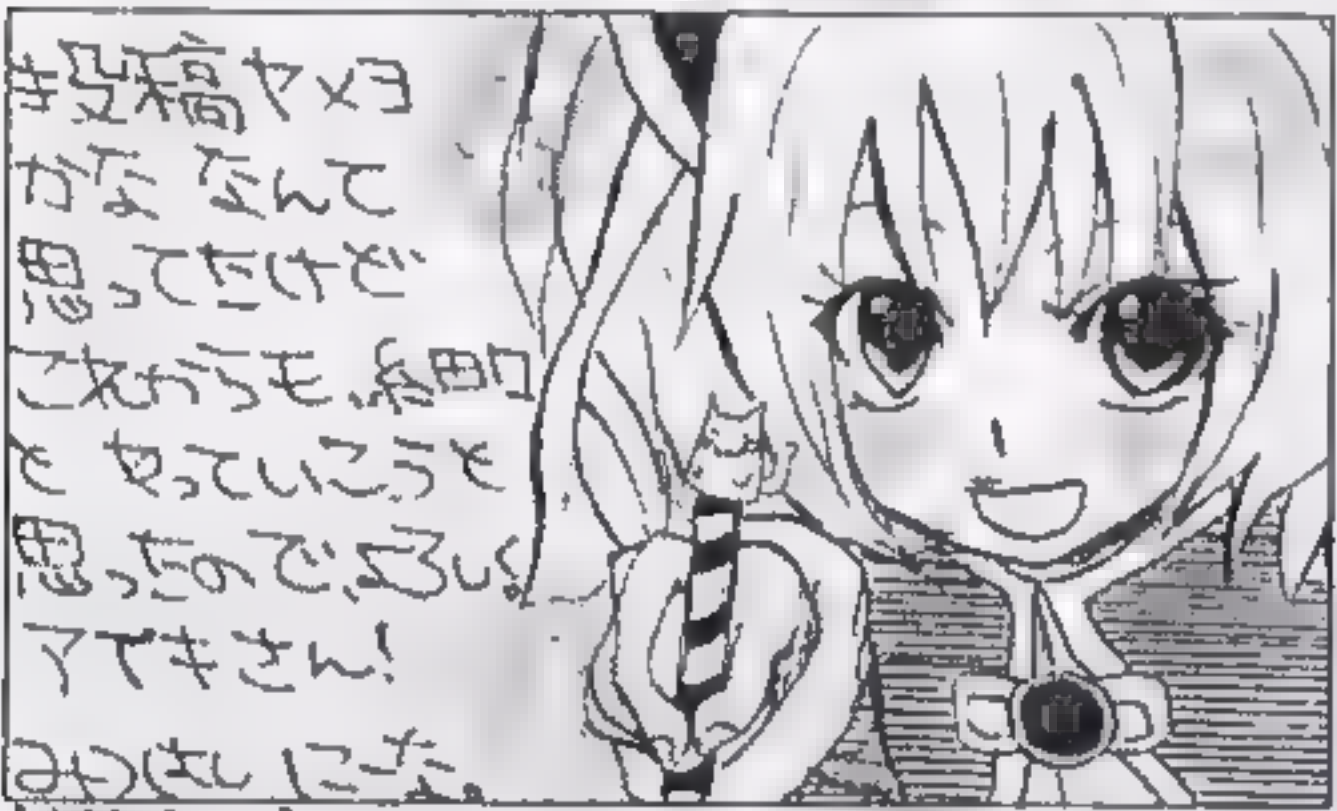 #投稿ヤメヨ
かな なんて
思ってたけど
これからも、細々
と やっていこうと
思ったので、宜しく。
アイキさん!
みつはしにな。